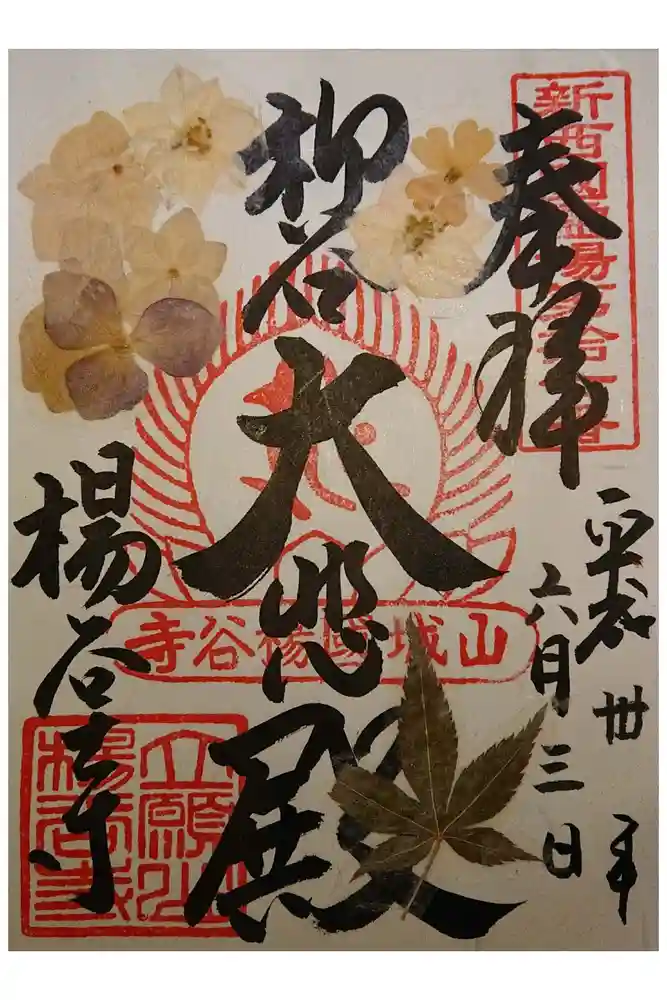 新西国霊場第拾七番
奉拝
平成卅年
六月三日
柳谷
大悲殿
山城國楊谷寺
楊谷寺
立願山楊谷寺